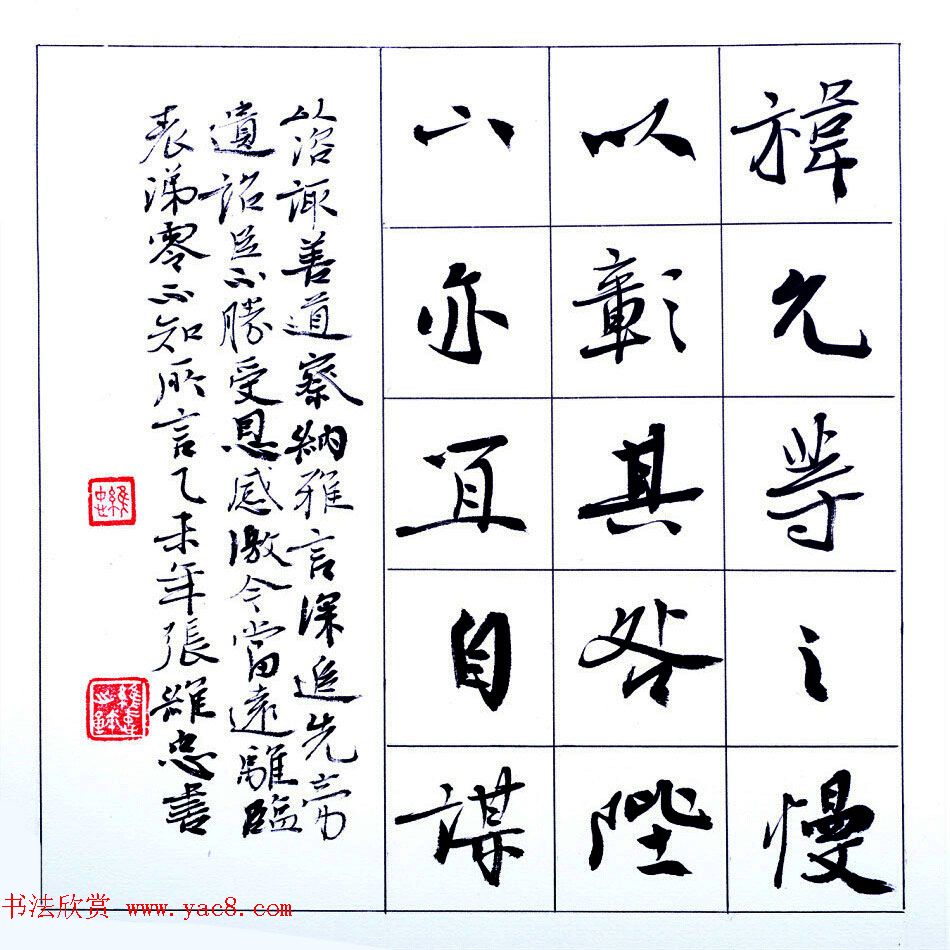 禕允等之慢
以彰其咎陛
下亦宜自謀
以諮諏善道察納雅言深追先帝
遺詔臣不勝受恩感激今當遠離臨
表涕零不知所言乙未年張維忠書
維忠
书法欣赏 www.yac8.com